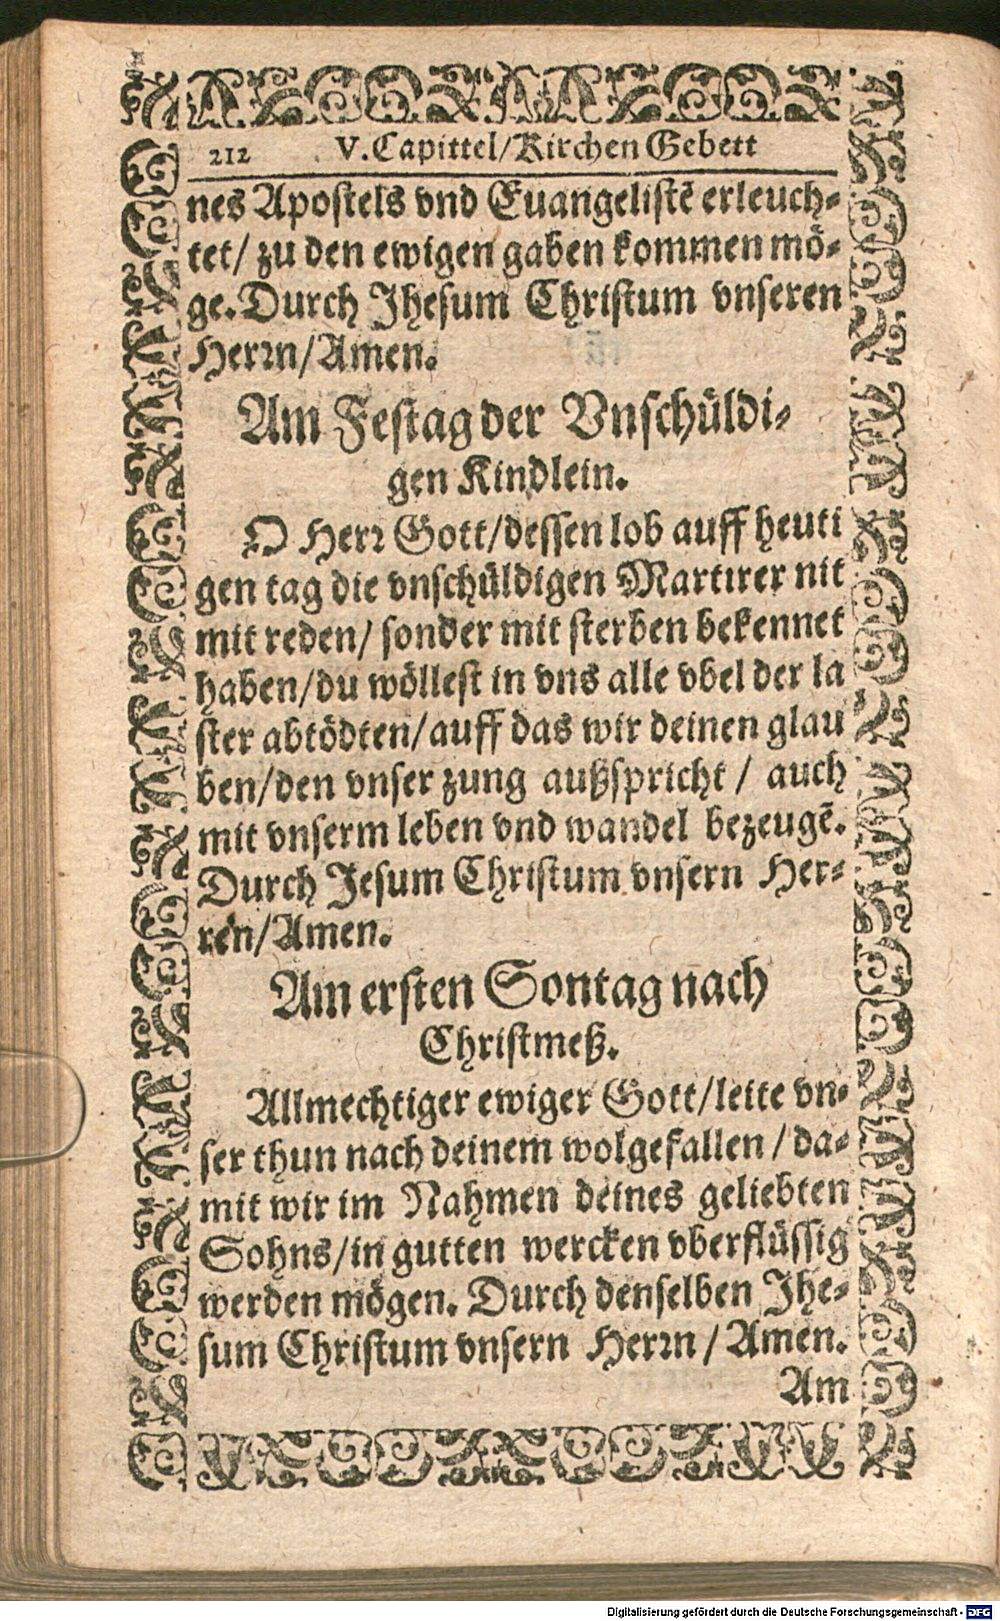 212 V. Capittel/Kirchen Gebett
nes Apostels vnd Euangelistē erleuch⸗
tet/ zu den ewigen gaben kommen mö⸗
ge. Durch Jhesum Christum vnseren
Herrn/Amen.
Am Festag der Vnschüldi⸗
gen Kindlein.
O Herr Gott/dessen lob auff heuti
gen tag die vnschüldigen Martirer nit
mit reden/ sonder mit sterben bekennet
haben/du wöllest in vns alle vbel der la
ster abtödten/auff das wir deinen glau
ben/den vnser zung außspricht / auch
mit vnserm leben vnd wandel bezeugē.
Durch Jesum Christum vnsern Her⸗
ren/Amen.
Am ersten Sontag nach
Christmeß.
Allmechtiger ewiger Gott/leite vn⸗
ser thun nach deinem wolgefallen / da⸗
mit wir im Nahmen deines geliebten
Sohns/in gutten wercken vberflüssig
werden mögen. Durch denselben Jhe⸗
sum Christum vnsern Herrn / Amen.
Am
Digitalisierung gefördert durch die Deutsche Forschungsgemeinschaft - DFG